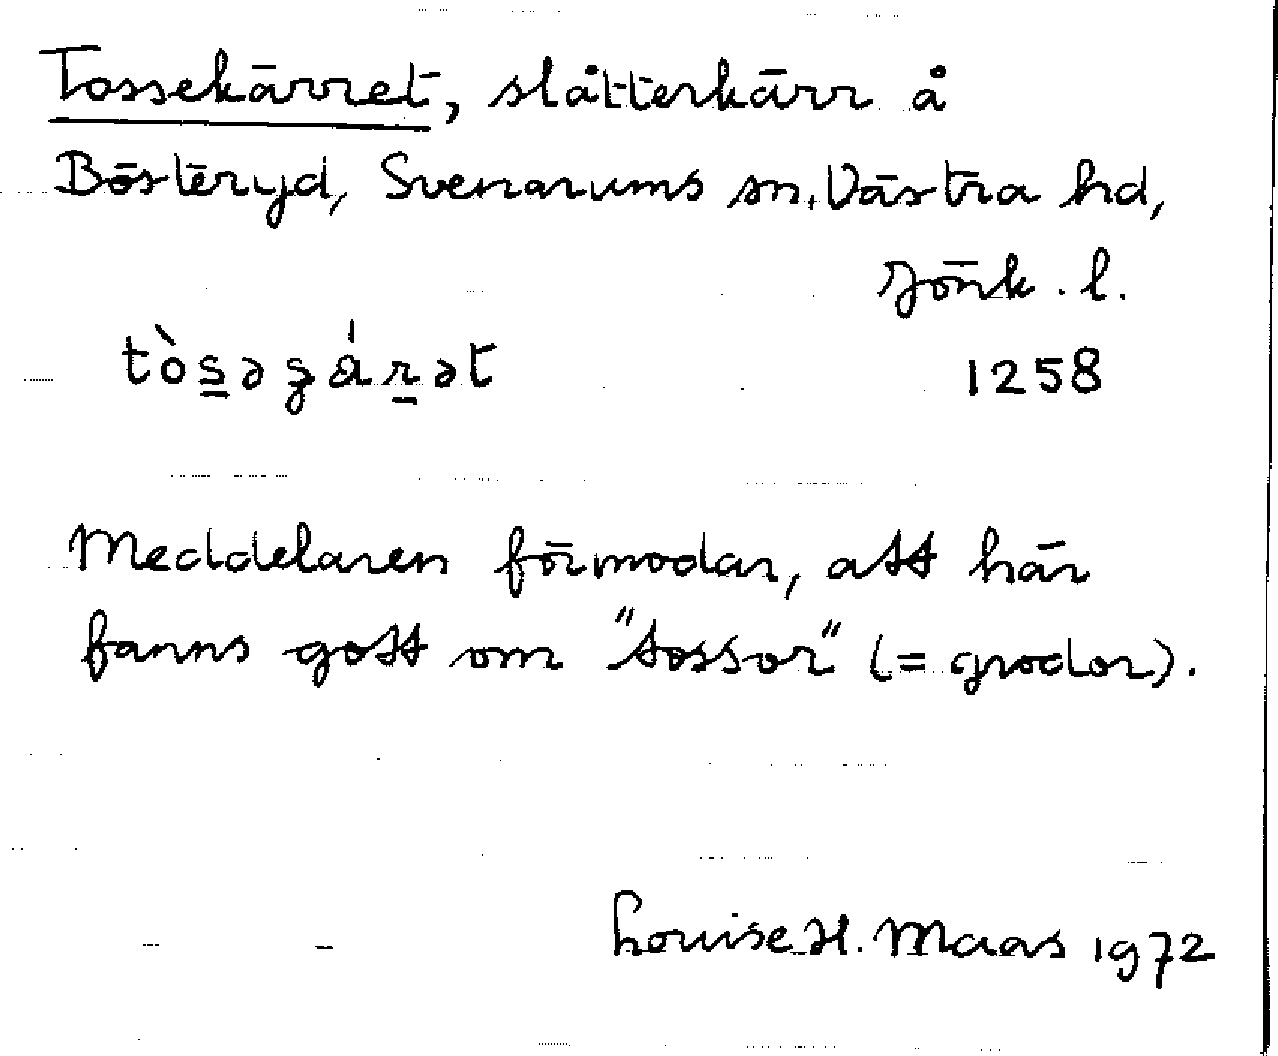 Tossekärret, slåtterkärr å
Bösteryd, Svenarums sn, Västra hd,
Jönk. l.
1258
Meddelaren förmodar, att här
fanns gott om "tossor" (= grodor).
Louise H. Maas 1972